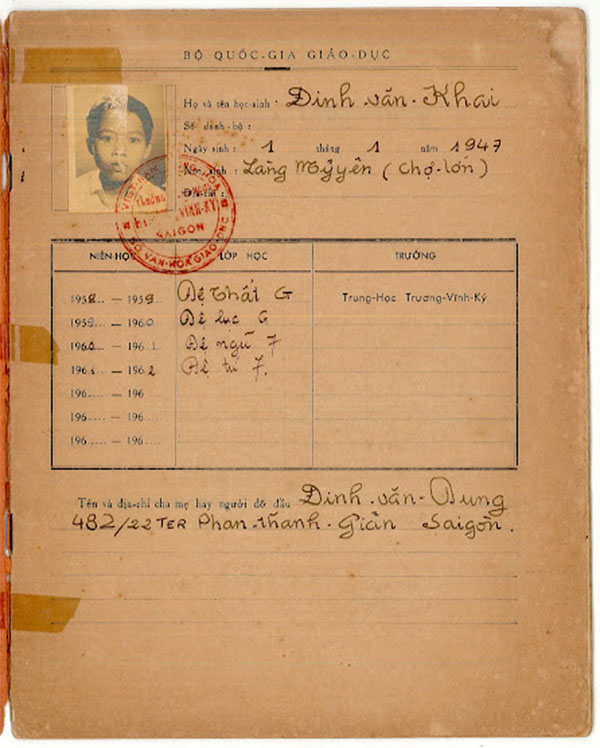 BỘ QUỐC-GIA GIÁO-DỤC
Họ và tên học-sinh : Đinh-văn-Khai
Số danh-bộ :
Ngày sinh : 1 tháng 1 năm 1947
sinh : Làng Mỹ yên (Chợ-lớn)
Địa-chỉ :
VIỆT-NAM CỘNG-HÒA
TRƯỜNG
VĨNH-KÝ
SAIGON
BỘ VĂN-HÓA GIÁO-DỤC
NIÊN-HỌC LỚP HỌC TRƯỜNG
1958 — 1959 Đệ thất G Trung-Học Trương-Vĩnh-Ký
1959 — 1960 Đệ lục G
1960 — 1961 Đệ ngũ 7
1961 — 1962 Đệ tứ 7.
196 — 196
196 — 196
196 — 196
Tên và địa-chỉ cha mẹ hay người đỡ đầu Đinh-văn-Dung
482/22 TER Phan-thanh-Giản Saigòn.